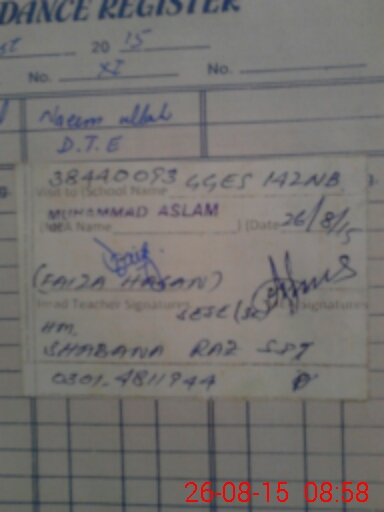 DANCE REGISTER
2015
No. XI No.
Naeem ullah
D.T.E
38440093 GGES 142NB
Visit to (School Name
MUHAMMAD ASLAM
(MEA Name ) (Date 26/8/15
(FAIZA HASAN)
Head Teacher Signatures SESE (Sc) Signatures
HM.
SHABANA RAZ SST
0301-4811944
26-08-15 08:58